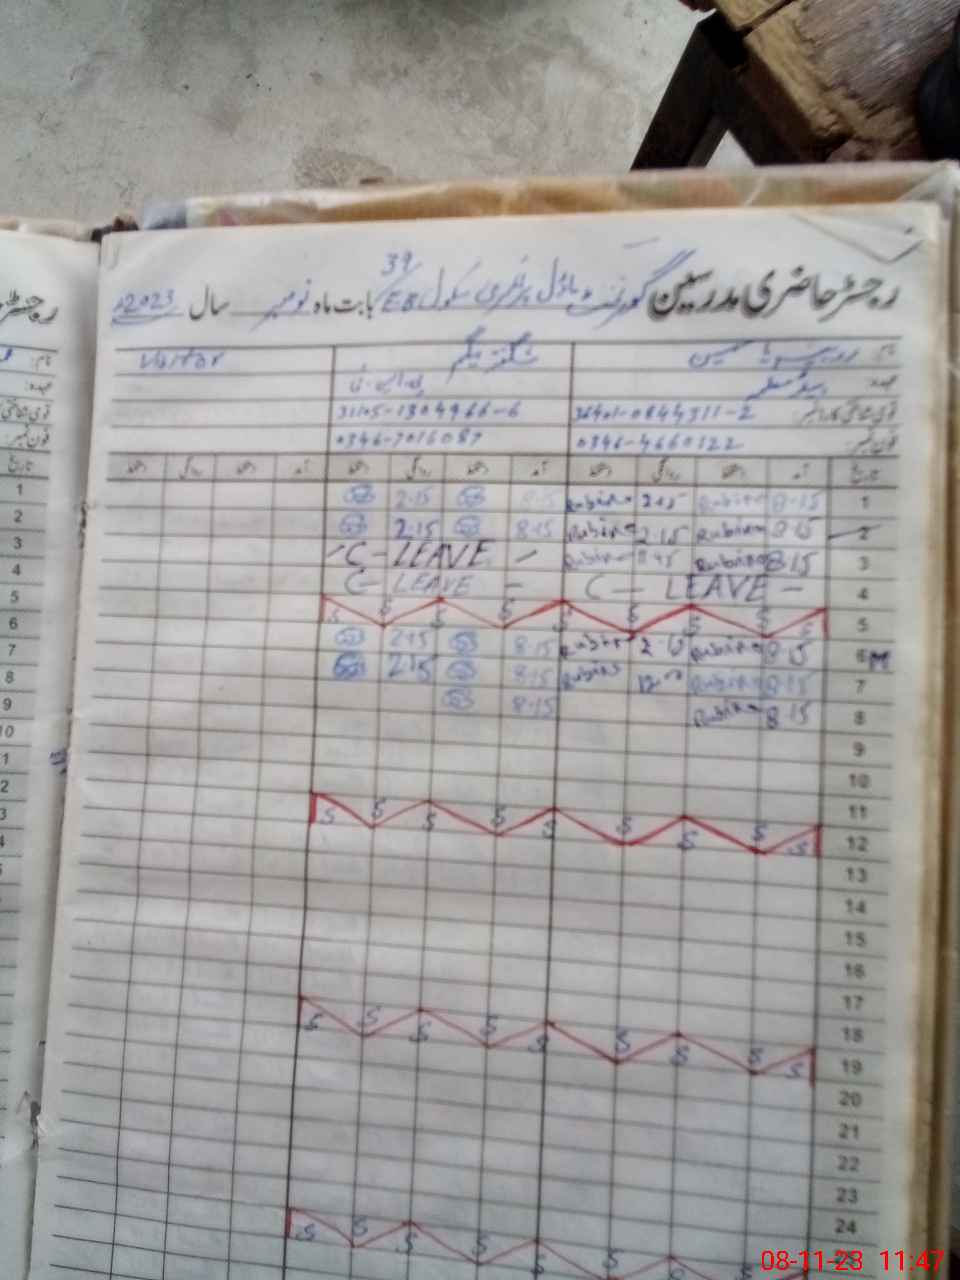 رجسٹر حاضری مدرسین گورنمنٹ ماڈل پرائمری سکول 39/EB بابت ماہ نومبر سال 2023
نام: روبینہ یاسمین شگفتہ بیگم Vacant
عہدہ: ہیڈ معلمہ
قومی شناختی کارڈ نمبر: 36401-0844311-2 31105-1304966-6
فون نمبر: 0346-4660122 0346-7016087
تاریخ آمد دستخط روانگی دستخط آمد دستخط روانگی دستخط آمد دستخط روانگی دستخط
1 8.15 Rubina 2.15 Rubina 8.15 2.15
2 8.15 Rubina 2.15 Rubina 8.15 2.15
3 8.15 Rubina Rubina C-LEAVE -
4 C-LEAVE - C-LEAVE -
5 S S S S S S S S S
6 M 8.15 Rubina 2.15 Rubina 8.15 2.15
7 8.15 Rubina 12.00 Rubina 8.15 2.15
8 8.15 Rubina 8.15
9
10
11
12 S S S S S S S S S
13
14
15
16
17
18
19 S S S S S S S S S
20
21
22
23
24
25
08-11-23 11:47